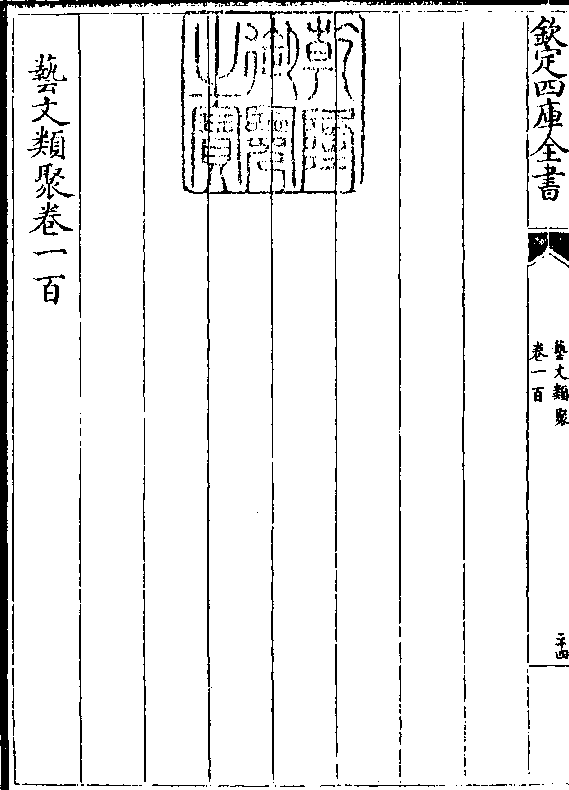 欽定四庫全書
藝文類聚
卷一百
二十四
乾隆御覽之寶
藝文類聚卷一百